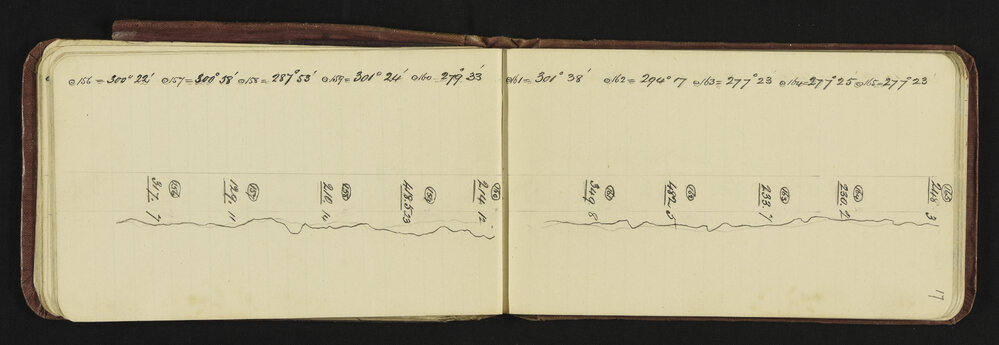 ⊙156 = 300° 22' ⊙157 = 300° 58' ⊙158 = 287° 53' ⊙159 = 301° 24' ⊙160 = 279° 33'
161 = 301° 38' ⊙162 = 294° 7 ⊙163 = 277° 23 ⊙164 = 277° 25' ⊙165 = 277° 23'
156
317. 7
157
129. 11
158
210. 10
159
148.5 23
214. 12
349. 8
482. 5
163
233. 7
164
230. 2
165
248 3
17